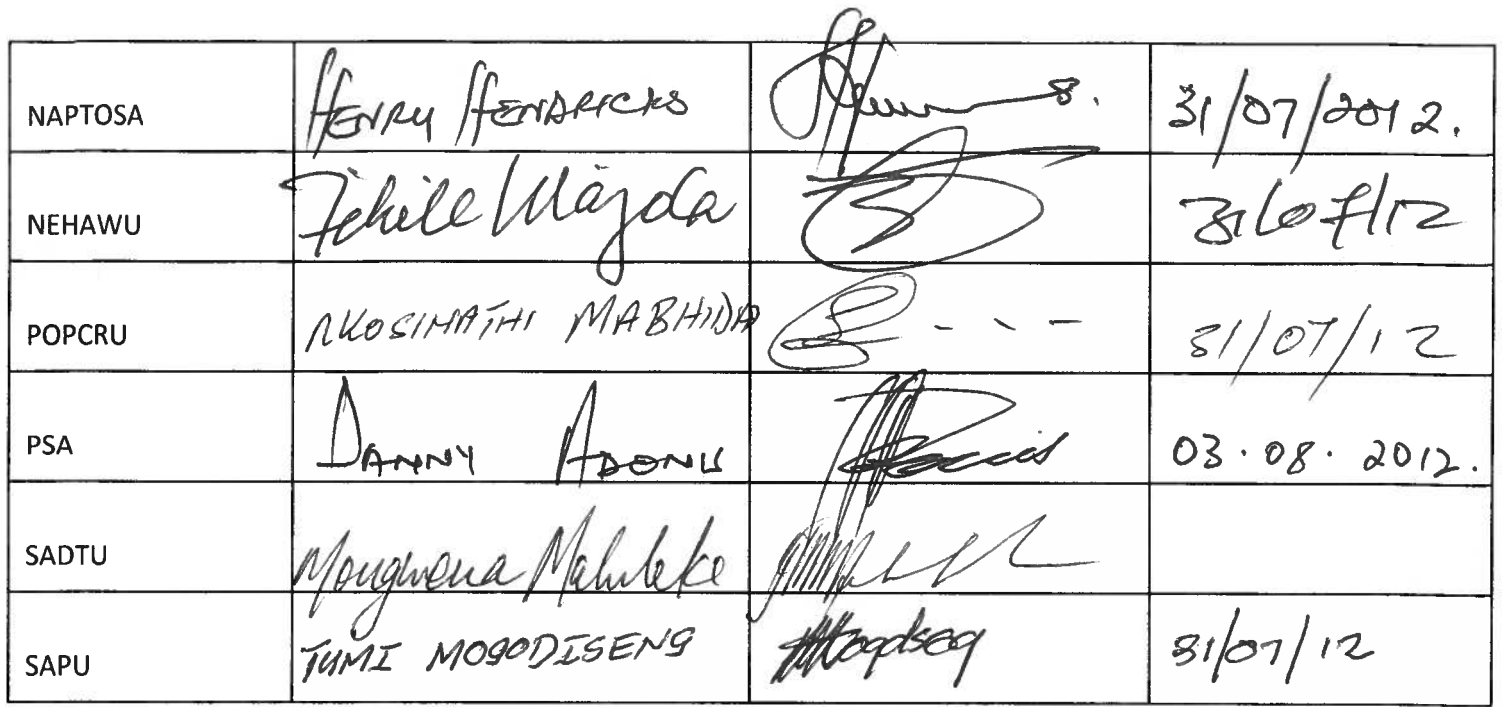 NAPTOSA HENRY HENDRICKS 31/07/2012.
NEHAWU Fikile Majola 31/07/12
POPCRU NKOSINATHI MABHIDA 31/07/12
PSA DANNY ADONIS 03.08.2012.
SADTU Mongwena Maluleke
SAPU TUMI MOGODISENG 31/07/12